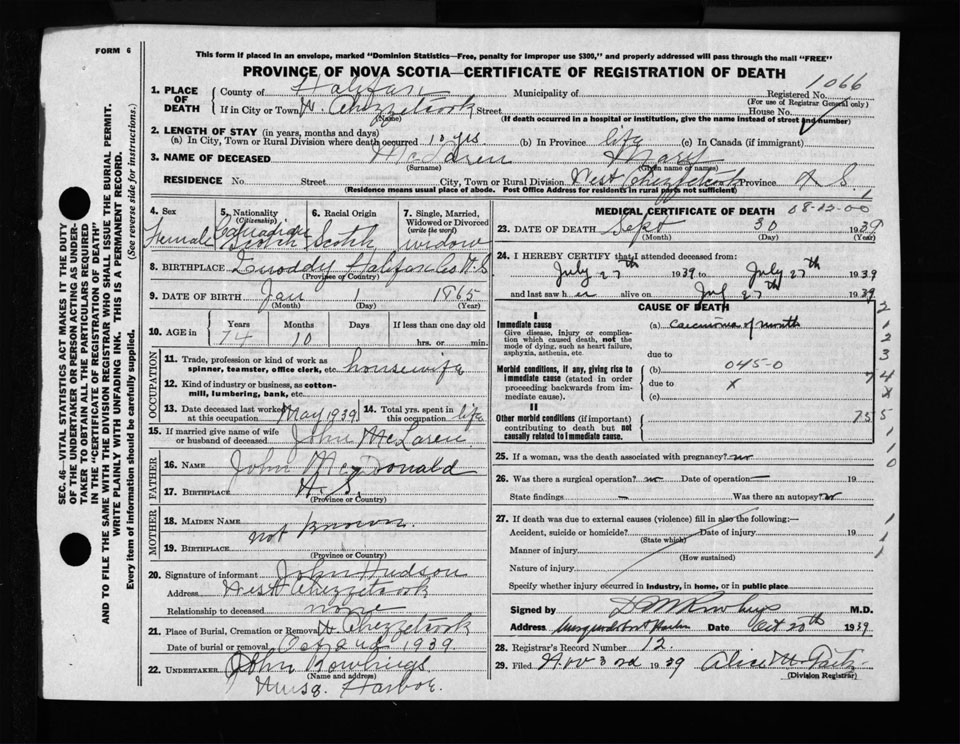 FORM 6
This form if placed in an envelope, marked "Dominion Statistics—Free, penalty for improper use $300," and properly addressed will pass through the mail "FREE"
PROVINCE OF NOVA SCOTIA—CERTIFICATE OF REGISTRATION OF DEATH
1. PLACE OF DEATH
County of Halifax Municipality of Registered No. 1066
(For use of Registrar General only)
If in City or Town W. Chezzetcook Street House No.
(Name) (If death occurred in a hospital or institution, give the name instead of street and number)
2. LENGTH OF STAY (in years, months and days)
(a) In City, Town or Rural Division where death occurred 10 yrs (b) In Province life (c) In Canada (if immigrant)
3. NAME OF DECEASED McLaren Mary
(Surname) (Given name or names)
RESIDENCE No. Street City, Town or Rural Division West Chezzetcook Province N S
(Residence means usual place of abode. Post Office Address for residents in rural parts not sufficient)
4. Sex Female
5. Nationality (Citizenship) Canadian Scotch
6. Racial Origin Scotch
7. Single, Married, Widowed or Divorced (write the word) widow
8. BIRTHPLACE Quoddy Halifax Co N.S
(Province or Country)
9. DATE OF BIRTH Jan 1 1865
(Month) (Day) (Year)
10. AGE in Years Months Days If less than one day old
74 10 hrs. or min.
OCCUPATION
11. Trade, profession or kind of work as spinner, teamster, office clerk, etc. housewife
12. Kind of industry or business, as cotton-mill, lumbering, bank, etc.
13. Date deceased last worked at this occupation May 1939
14. Total yrs. spent in this occupation life
15. If married give name of wife or husband of deceased John McLaren
FATHER
16. NAME John McDonald
17. BIRTHPLACE N. S.
(Province or Country)
MOTHER
18. MAIDEN NAME not Known
19. BIRTHPLACE
(Province or Country)
20. Signature of informant John Hudson
Address West Chezzetcook
Relationship to deceased none
21. Place of Burial, Cremation or Removal W Chezzetcook
Date of burial or removal Oct 2nd 1939.
22. UNDERTAKER John Rowlings
(Name and address)
Musq. Harbor.
MEDICAL CERTIFICATE OF DEATH 08-25-00
23. DATE OF DEATH Sept 30 1939
(Month) (Day) (Year)
24. I HEREBY CERTIFY that I attended deceased from:
July 27th 1939 to July 27th 1939
and last saw her alive on July 27th 1939
CAUSE OF DEATH
I
Immediate cause
Give disease, injury or complication which caused death, not the mode of dying, such as heart failure, asphyxia, asthenia, etc.
(a) Carcinoma of mouth
due to
Morbid conditions, if any, giving rise to immediate cause (stated in order proceeding backwards from immediate cause).
(b) 045-0
due to x
(c)
II
Other morbid conditions (if important) contributing to death but not causally related to immediate cause.
25. If a woman, was the death associated with pregnancy? no
26. Was there a surgical operation? no Date of operation — 19
State findings — Was there an autopsy? no
27. If death was due to external causes (violence) fill in also the following:—
Accident, suicide or homicide? Date of injury 19
(State which)
Manner of injury
(How sustained)
Nature of injury
Specify whether injury occurred in industry, in home, or in public place
Signed by M.D.
Address Musquodoboit Harbor Date Oct 20th 1939
28. Registrar's Record Number 12.
29. Filed Nov 3rd 1939 Alice M
(Division Registrar)
SEC. 46—VITAL STATISTICS ACT MAKES IT THE DUTY OF THE UNDERTAKER OR PERSON ACTING AS UNDERTAKER TO OBTAIN ALL THE PARTICULARS REQUIRED IN THE "CERTIFICATE OF REGISTRATION OF DEATH" AND TO FILE THE SAME WITH THE DIVISION REGISTRAR WHO SHALL ISSUE THE BURIAL PERMIT.
WRITE PLAINLY WITH UNFADING INK. THIS IS A PERMANENT RECORD.
Every item of information should be carefully supplied. (See reverse side for instructions.)